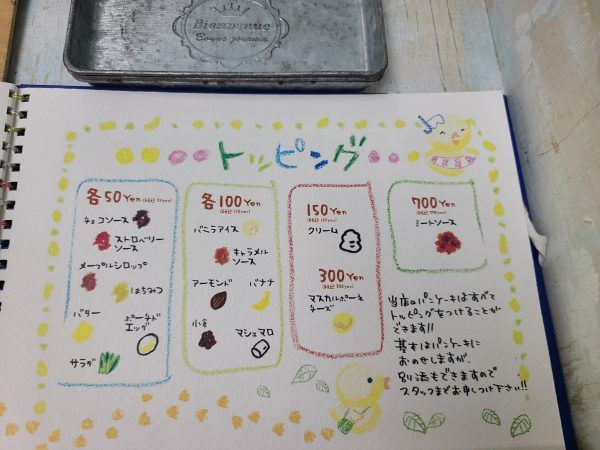 Bienvenue
Bonne journée
トッピング
各50Yen(税込55yen)
チョコソース
ストロベリー
ソース
メープルシロップ
はちみつ
バター
ポーチド
エッグ
サラダ
各100Yen(税込110yen)
バニラアイス
キャラメル
ソース
アーモンド
バナナ
小倉
マシュマロ
150Yen
(税込165yen)
クリーム
300Yen
(税込330yen)
マスカルポーネ
チーズ
700Yen
(税込770yen)
ミートソース
当店のパンケーキはすべて
トッピングをつけることが
できます!!
基本はパンケーキに
おのせしますが、
別添もできますので
スタッフまでお申しつけ下さい!!